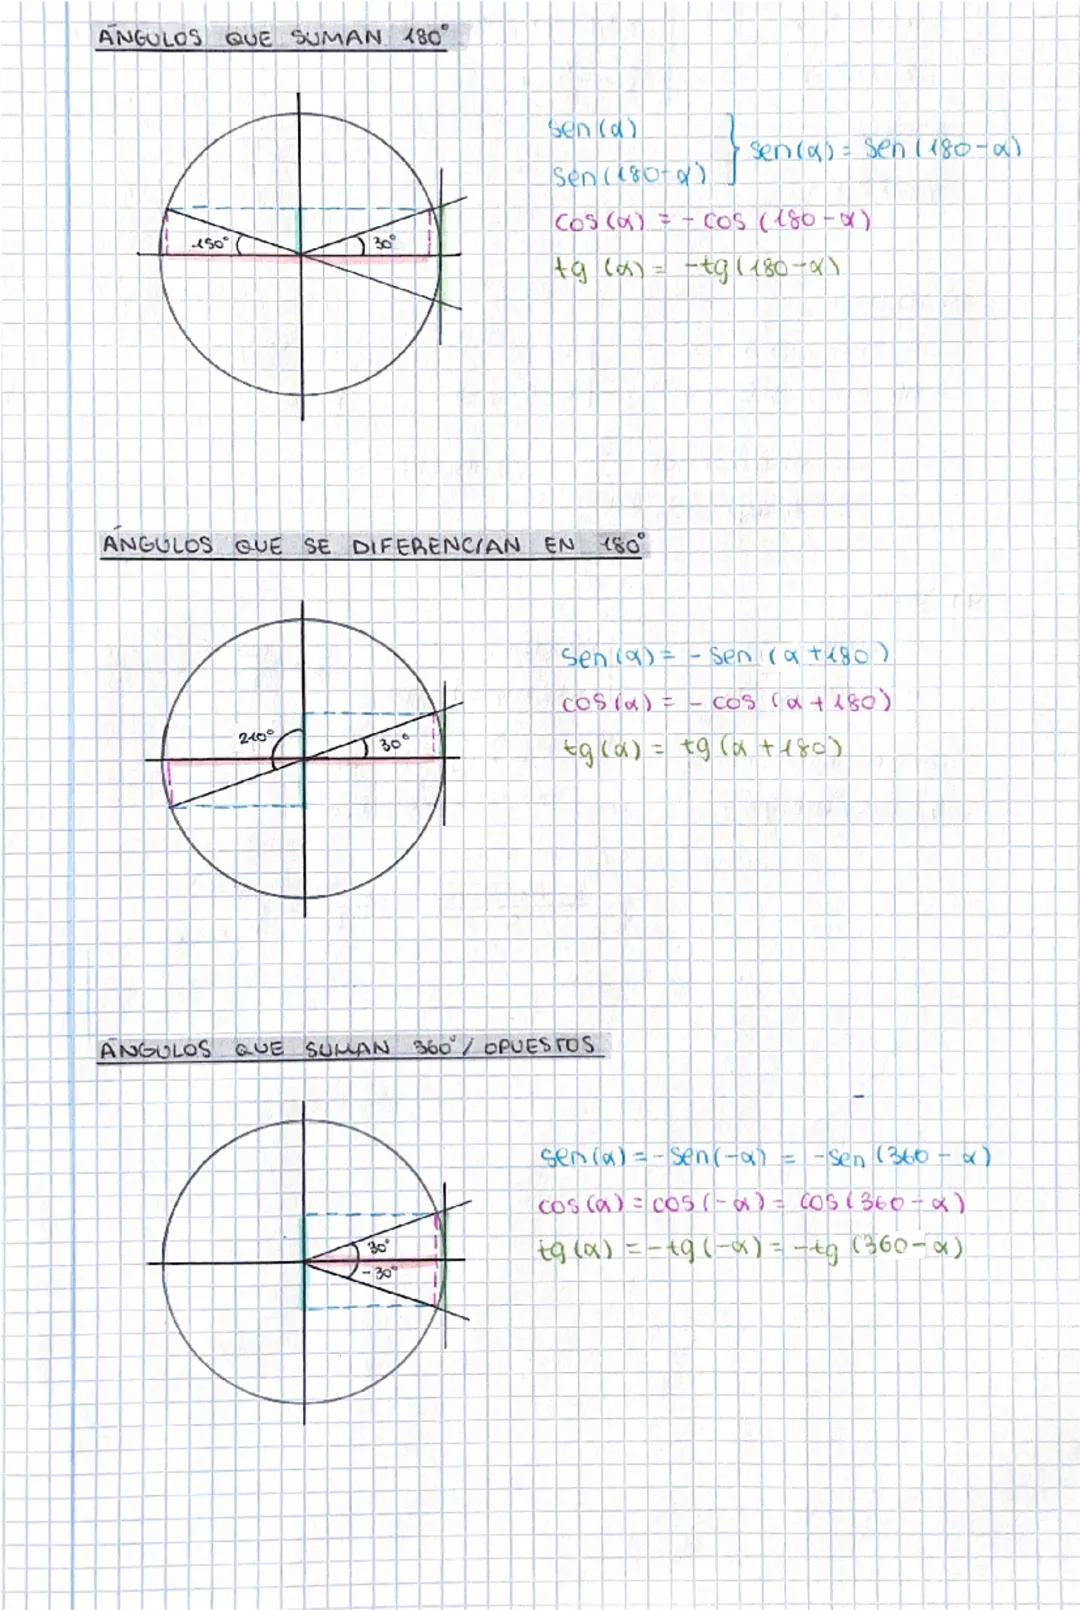 ÁNGULOS QUE SUMAN 180°
sen(α)
sen(180-α) } sen(α) = sen(180-α)
cos(α) = - cos (180-α)
tg (α) = -tg(180-α)
150° 30°
ÁNGULOS QUE SE DIFERENCIAN EN 180°
sen(α) = - sen (α+180)
cos(α) = - cos (α+180)
tg(α) = tg(α+180)
210° 30°
ÁNGULOS QUE SUMAN 360°/ OPUESTOS
sen(α) = -sen(-α) = -sen (360-α)
cos(α) = cos(-α) = cos(360-α)
tg(α) = -tg(-α) = -tg (360-α)
30°
-30°